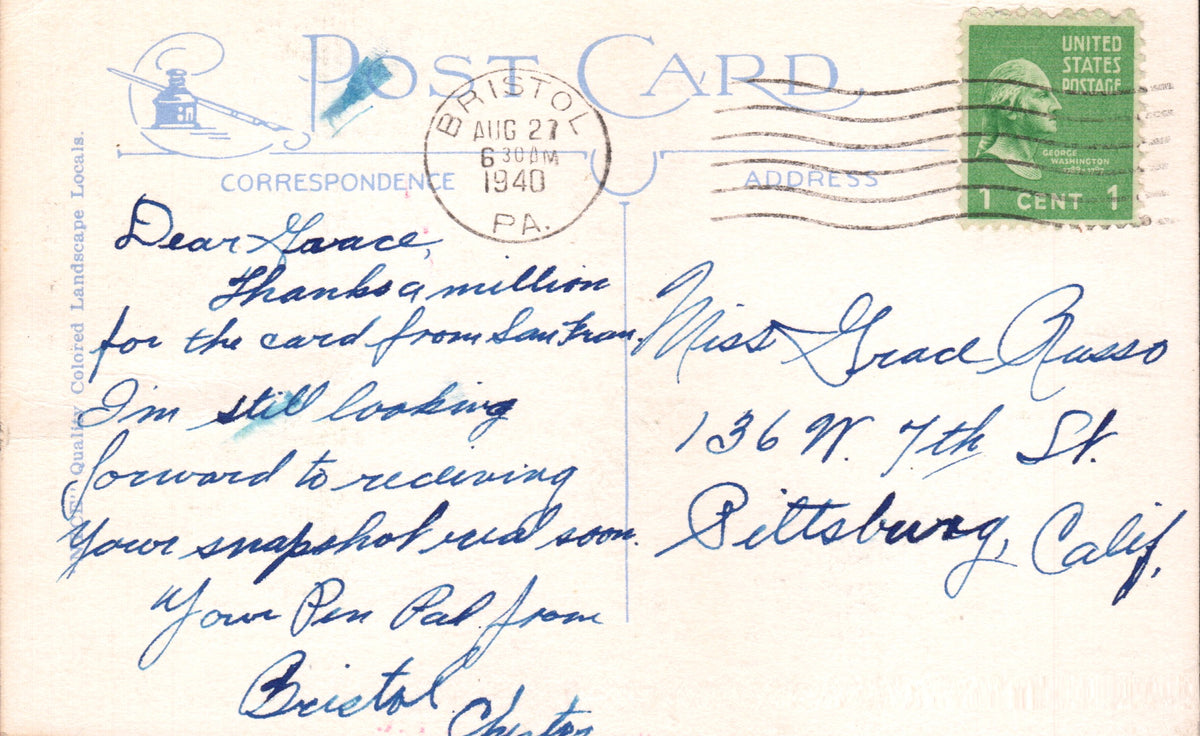 POST CARD
BRISTOL
AUG 27
6 30 AM
1940
PA.
UNITED
STATES
POSTAGE
GEORGE
WASHINGTON
1 CENT 1
CORRESPONDENCE
ADDRESS
Quality Colored Landscape Locals.
Dear Grace,
Thanks a million
for the card from San Fran.
I'm still looking
forward to reciving
your snapshot real soon.
"Your Pen Pal from
Bristol
Chester
Miss Grace Russo
136 W. 7th St.
Pittsburg, Calif.